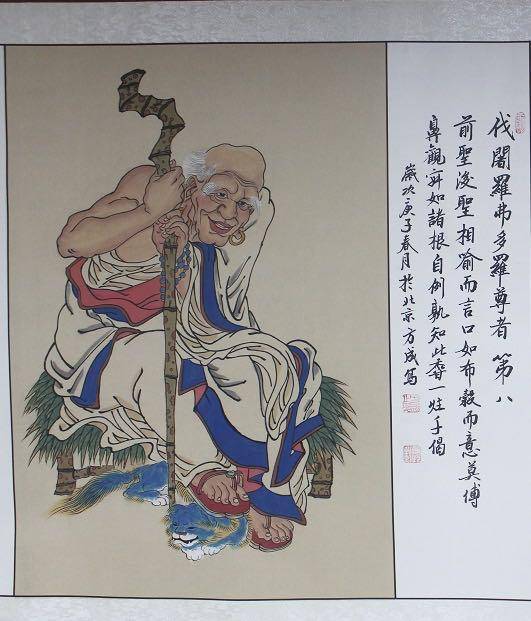 伐闍羅弗多羅尊者 第八
前聖後聖相喻而言口如布穀而意莫傳
鼻觀寂如諸根自例孰知此香一炷千偈
歲次庚子春月於北京方成寫